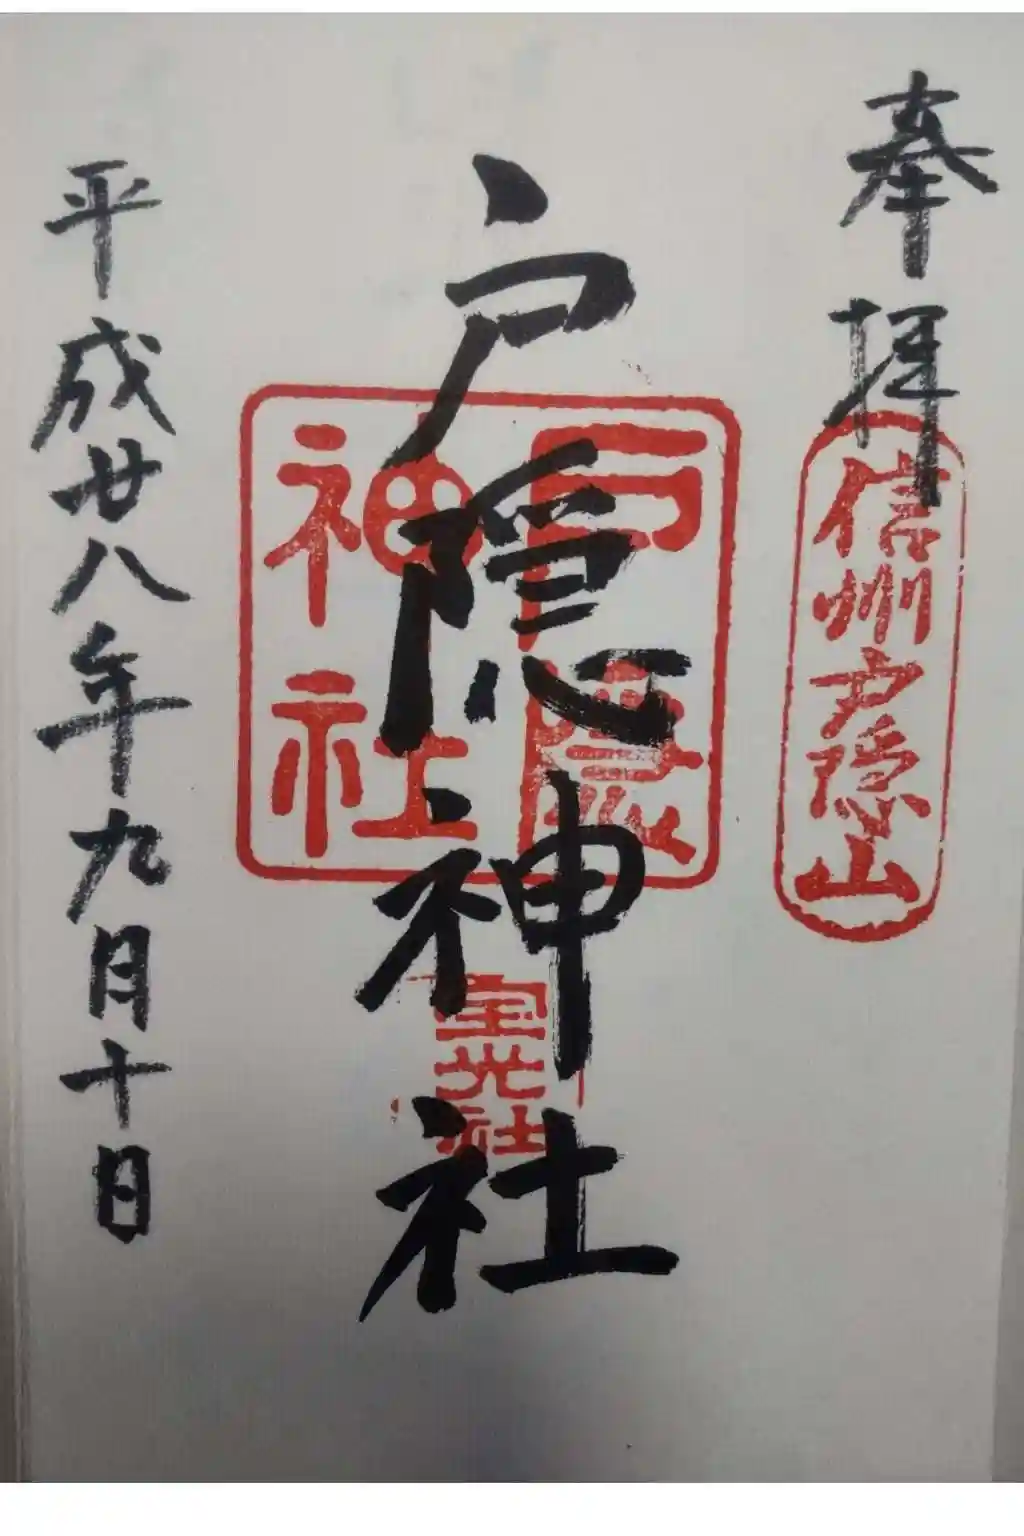 奉拝
信州戸隠山
戸隠神社
戸隠
神社
宝光社
平成廿八年九月十日